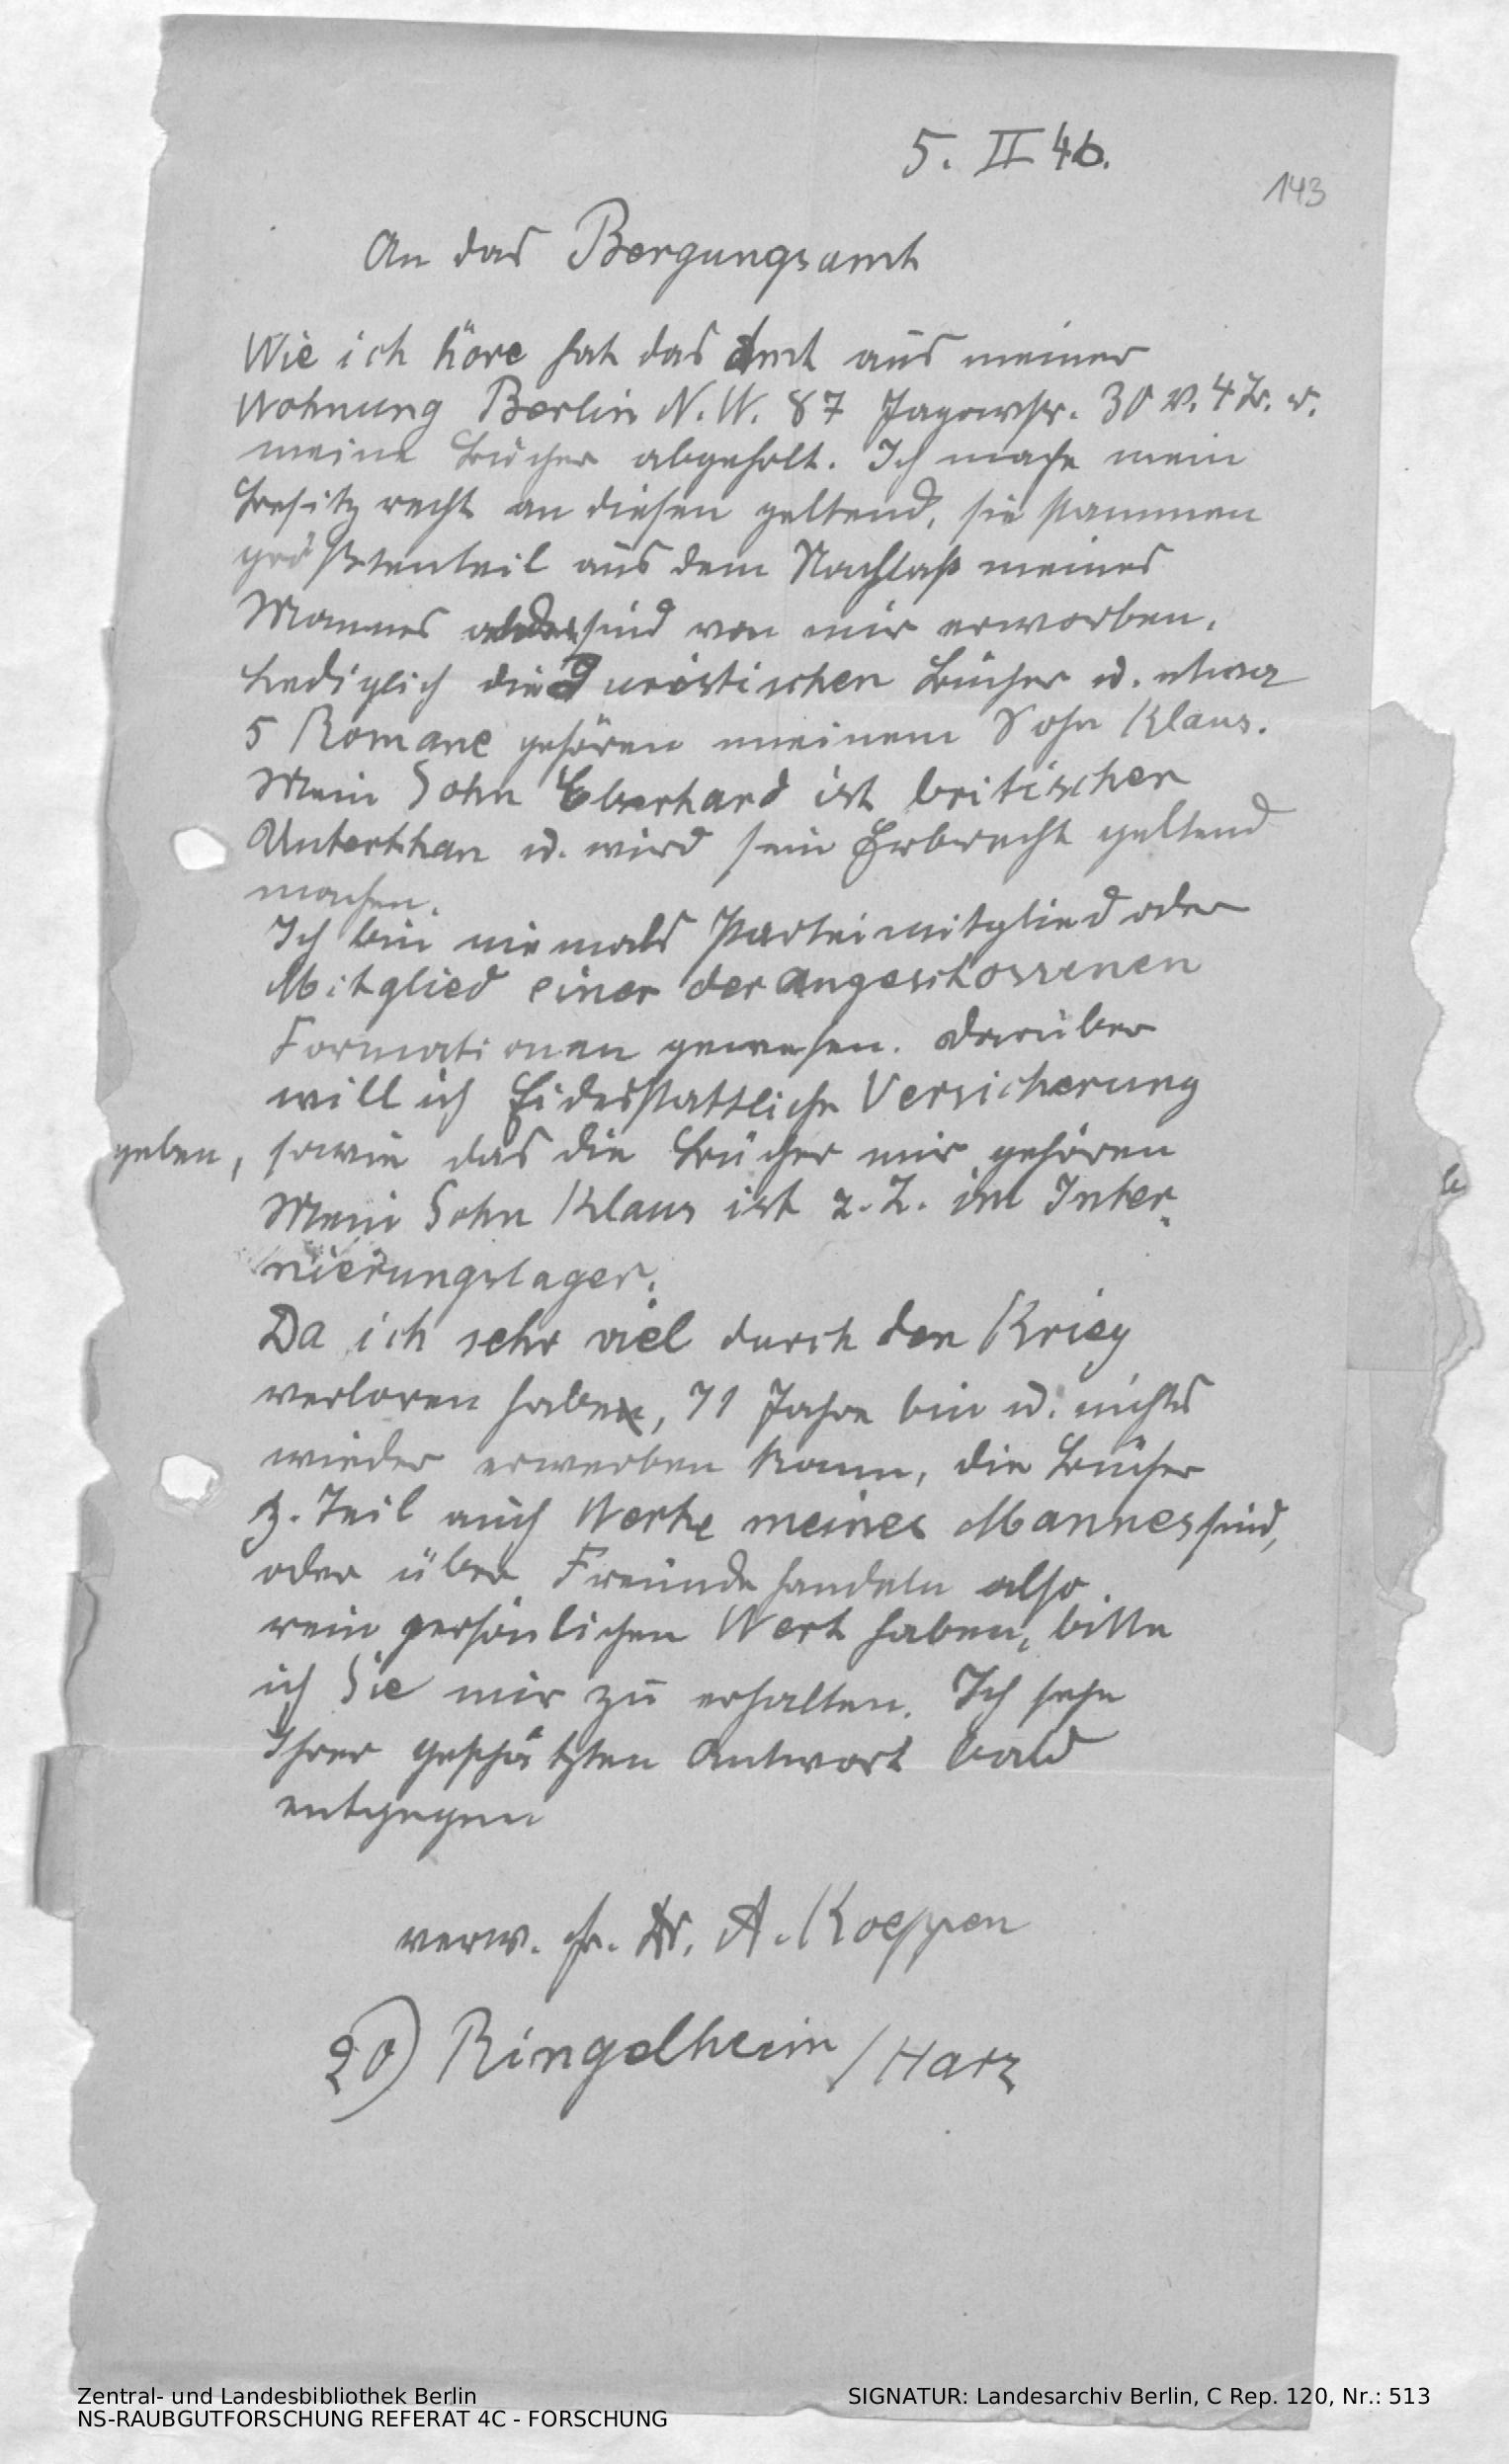 5. II 46.
143
An das Bergungsamt
Wie ich höre hat das Amt aus meiner
Wohnung Berlin N.W. 87 Jagowstr. 30 v. 4 Tr. r.
meine Bücher abgeholt. Ich mache mein
Besitzrecht an diesen geltend, sie stammen
größtenteil aus dem Nachlaß meines
Mannes sind von mir erworben.
Lediglich die Juristischen Bücher u. etwa
5 Romane gehören meinem Sohn Klaus.
Mein Sohn Eberhard ist britischer
Unterthan u. wird sein Erbrecht geltend
machen.
Ich bin niemals Parteimitglied oder
Mitglied einer der angeschossenen
Formationen gewesen. Darüber
will ich Eidesstattliche Versicherung
geben, sowie das die Bücher mir gehören
Mein Sohn Klaus ist z. Z. im Inter-
nierungslager.
Da ich sehr viel durch den Krieg
verloren habe, 71 Jahre bin u. nichts
wieder erwerben kann, die Bücher
z. Teil auch Werke meines Mannes sind,
oder über Freunde handeln also
rein persönlichen Wert haben, bitte
ich Sie mir zu erhalten. Ich sehe
Ihrer geschätzten Antwort bald
entgegen
verw. Fr. Dr. A. Koeppen
20) Ringelheim / Harz
Zentral- und Landesbibliothek Berlin
NS-RAUBGUTFORSCHUNG REFERAT 4C - FORSCHUNG
SIGNATUR: Landesarchiv Berlin, C Rep. 120, Nr.: 513